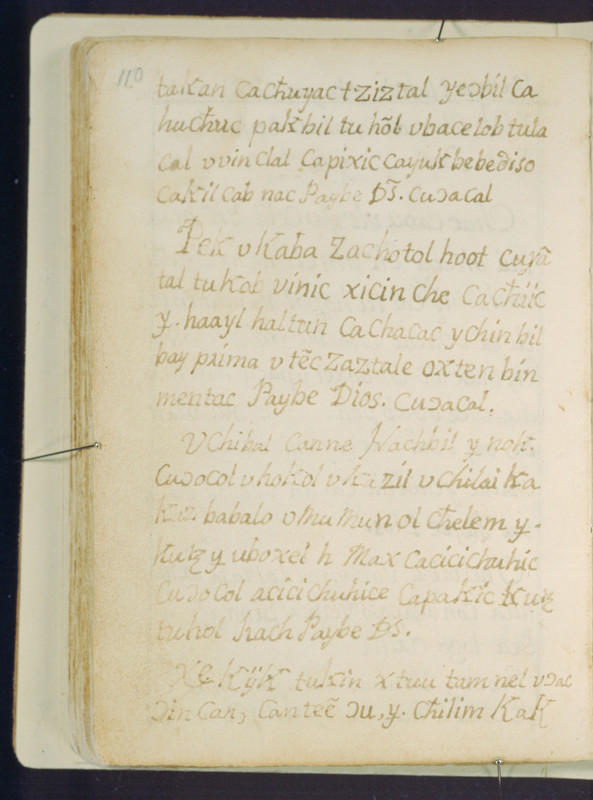 110
takan ca chuyac t ziz tal yeɔbil ca
huchuc pakbil tu hõl v bacelob tula
cal v vinclal Ca pixic cayuk bebe diso
cakil cab nac Paybe Ds̃. cuɔacal
Pek v kaba Zachotol hoot cuyã
tal tu kab vinic xicin che Ca chiic
y. haayl haltun Ca chacac y chin bil
bay prima v tẽc Zaztale oxten bin
mentac Paybe Dios. cuɔacal.
V Chibal Canne Nachbil y noh.
Cuɔocol v hokol v zil v Chilai Ka
babalo v mu mun ol chelem y.
kuꜩ y uboxel h Max cacicichuhic
Cuɔocol acicichuhice Capakic kuꜩ
tuhol hach Paybe Ds̃.
Xe Kijk tukin x tuu tam nel vɔac
ɔin Can, Canteẽ ɔu, y. chilim KaK